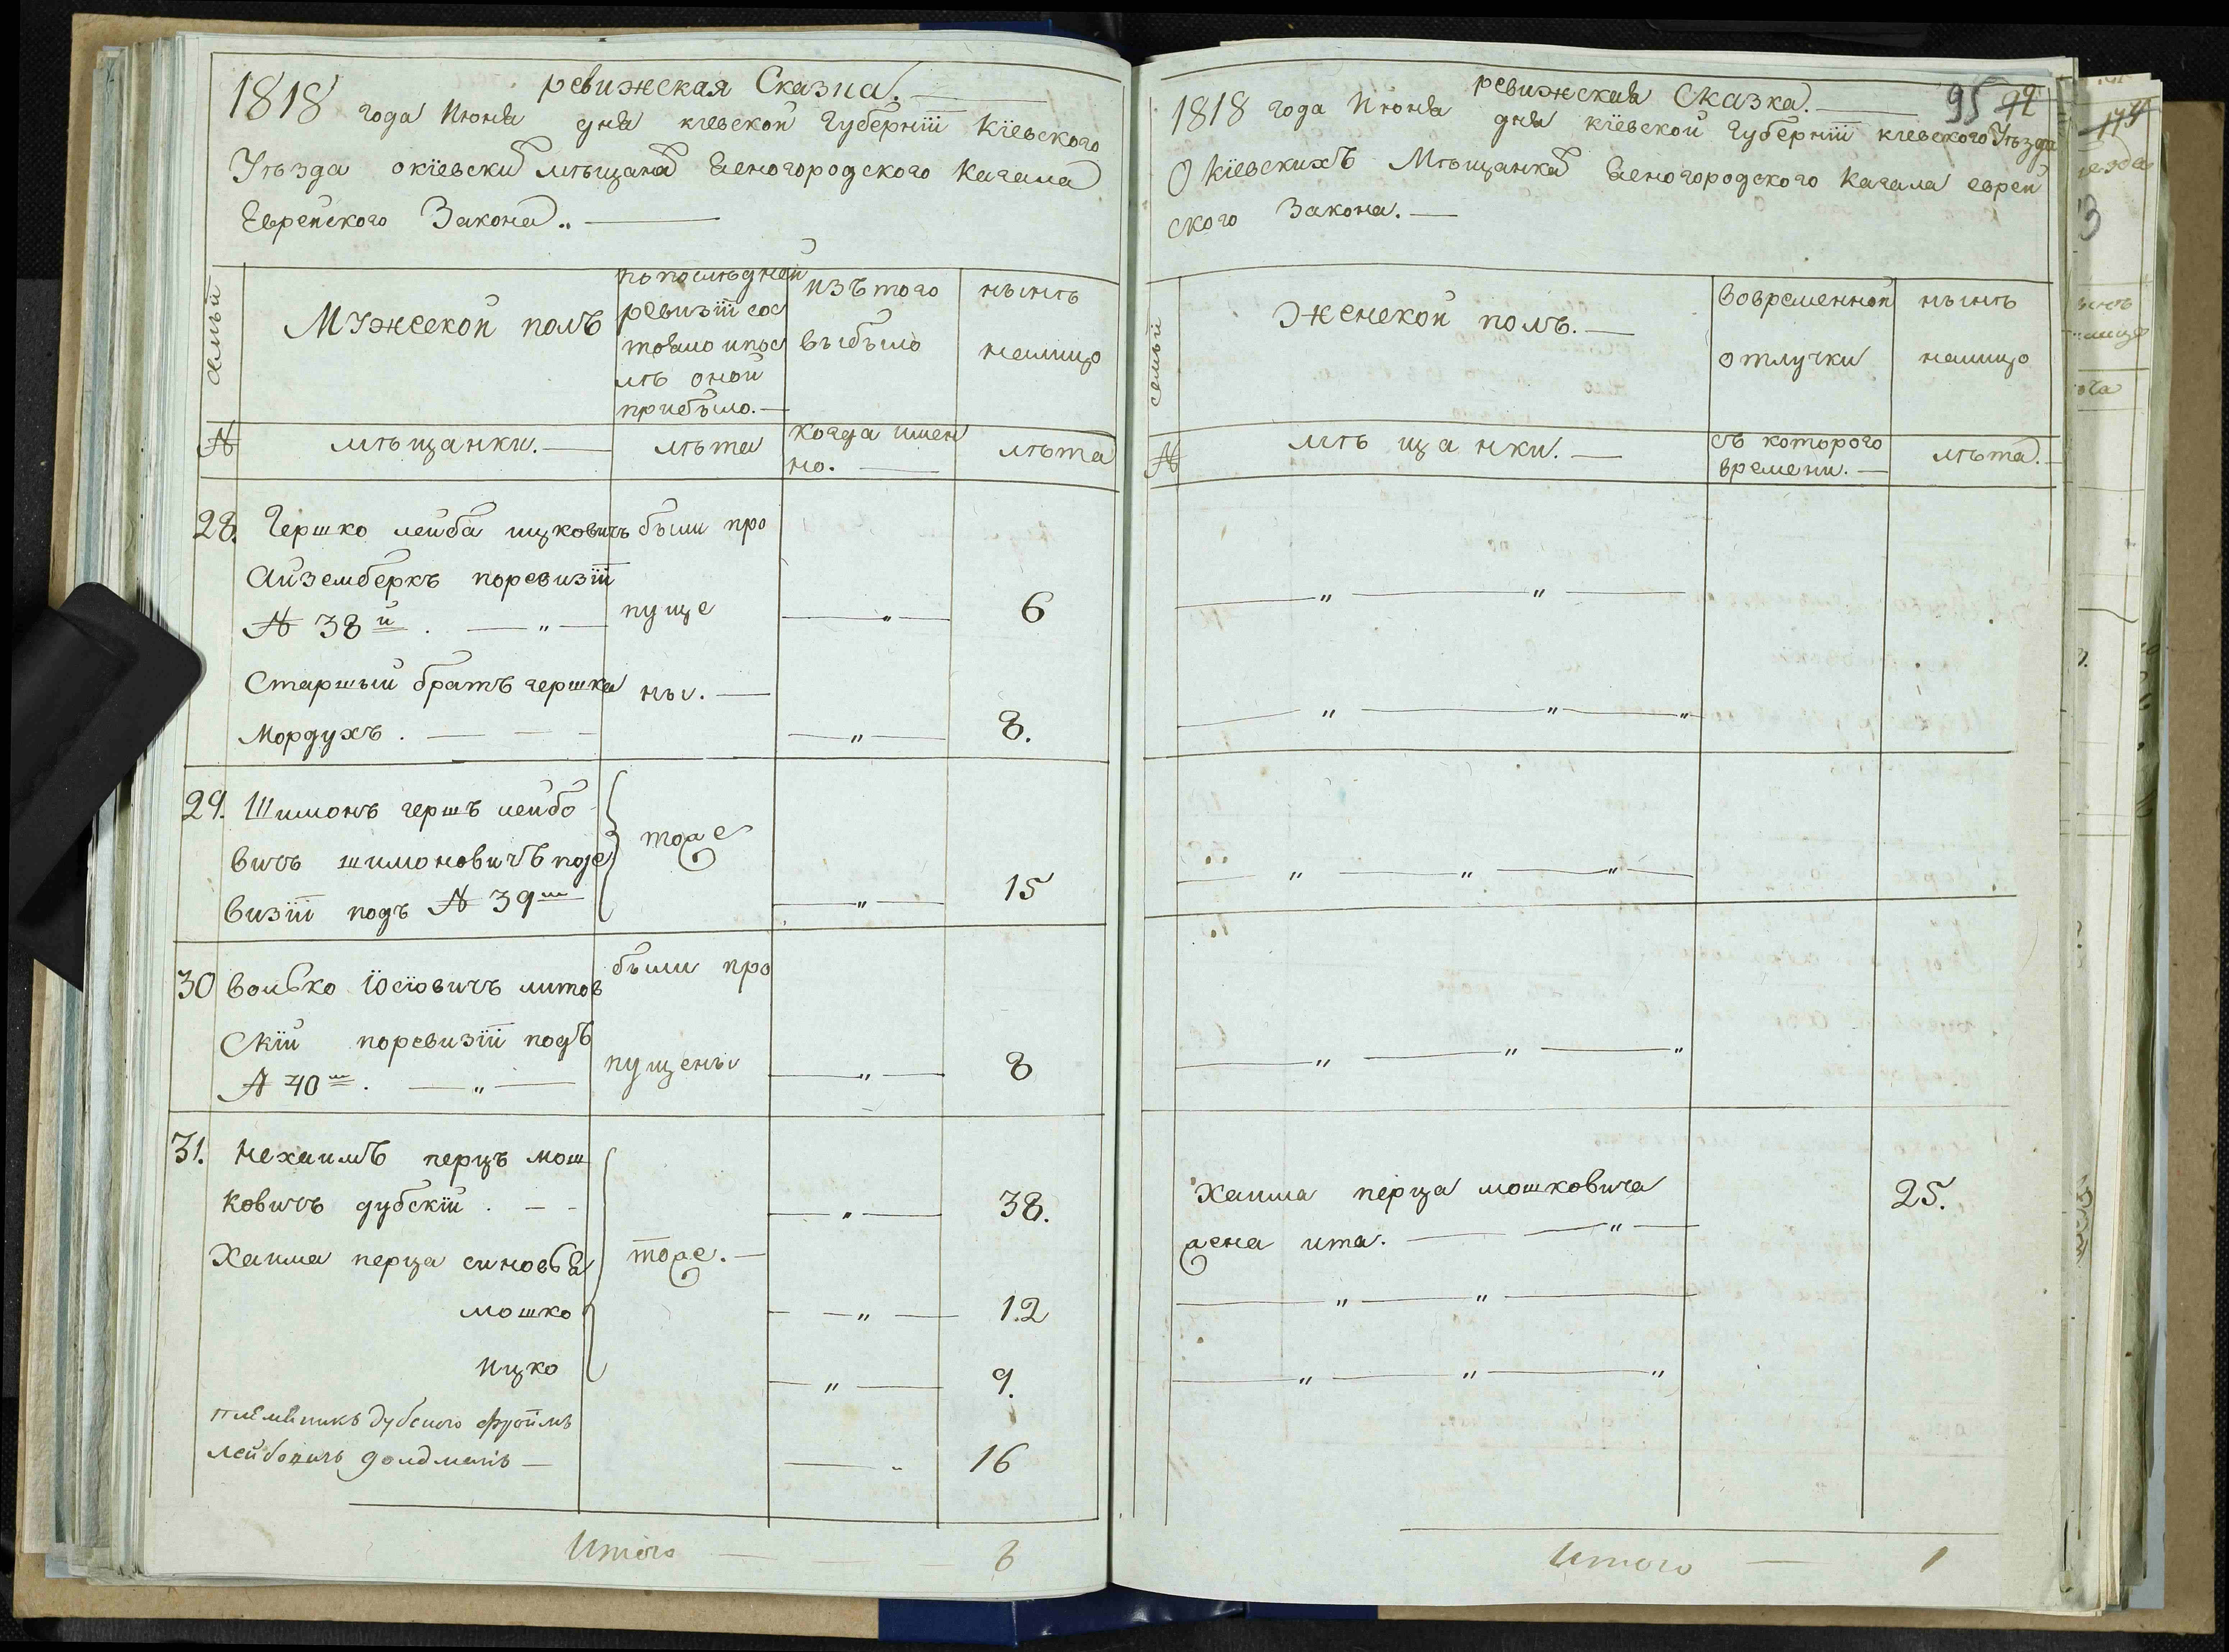 ревижская Сказка.
1818 года Июня дня кіевской Губерніи Кіевского
Уѣзда о кіевски мѣщана Беногородского Кагала
Еврейского Закона..
семьи
Мужескои полъ
по последней
ревизіи сос
тояло и пос
лѣ оной
прибыло.
изъ того
выбыло
нынѣ
налицо
№
мѣщанки.
лѣта
когда имен
но.
лѣта
28. Гершко лейба ицковичъ были про
Айзембергъ поревизіи
№ 38й. — „ — пуще — „ — 6
Старшый братъ гершка ны.
Мордухъ. — „ — 8.
29. Шимонъ гершъ лейбо
вичъ шимоновичъ поре тоже
визіи подъ № 39м — „ — 15
30 волько Іосіовичъ литов были про
Скій поревизіи подъ
№ 40м. — „ — пущены — „ — 8
31. Нехаимъ перцъ мош
ковичъ дубскій. — „ — 38.
Хаима перца синовья тоже.
мошко — „ — 12
Ицко — „ — 9.
племяникъ дубского фроимъ
лейбовичъ голдманъ — — „ 16
Итого — 6
95 92
ревижская Сказка.
1818 года Июня дня кіевской Губерніи кіевского Уѣзда
О Кіевскихъ Мѣщанка Беногородского Кагала еврей
ского Закона.
семьи
Женской полъ.
вовременной
отлучки
нынѣ
налицо
№
мѣщанки.
съ которого
времени.
лѣта.
— „ — „ —
— „ — „ — „
— „ — „ — „ —
— „ — „ — „
Хаима перца мошковича 25.
жена ита. — „ —
— „ — „ —
— „ — „ — „
Итого — 1